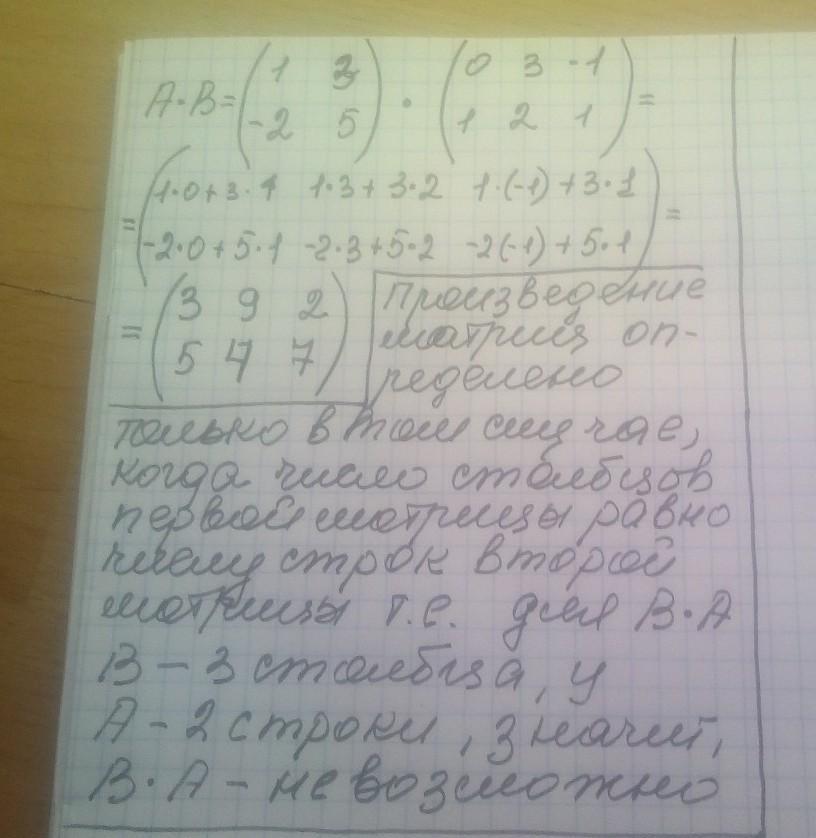 A·B = (1 3; -2 5) · (0 3 -1; 1 2 1) =
= (1·0+3·1 1·3+3·2 1·(-1)+3·1; -2·0+5·1 -2·3+5·2 -2(-1)+5·1) =
= (3 9 2; 5 4 7)
Произведение
матриц оп-
ределено
только в том случае,
когда число столбцов
первой матрицы равно
числу строк второй
матрицы т.е. для B·A
B – 3 столбца, у
A – 2 строки, значит,
B·A – невозможно